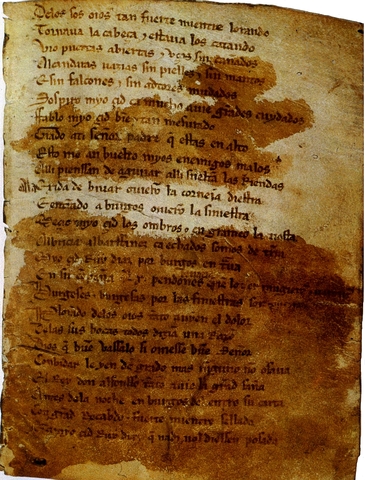 Delos sos oios tan fuerte mientre lorando
Tornaua la cabeça τ estaua los catando
Vio puertas abiertas τ vços sin cañados
Alcandaras uazias sin pielles τ sin mantos
E sin falcones τ sin adtores mudados
Sospiro myo çid ca mucho auie grādes cuydados
Fablo myo çid bien τ tan mesurado
Grado ati señor padre q̄ estas en alto
Esto me an buelto myos enemigos malos
Alli pienssan de aguiiar alli sueltā las Riendas
Ala exida de biuar ouierō la corneia diestra
Entrādo a burgos ouierō la siniestra
Meçio myo çid los ombros τ en grameo la tiesta
Albriçia albarffanez ca echados somos de t̄ria
Myo çid Ruy diaz por burgos en traua
En su conpaña .Lx. pendones
Burgeses τ burgesas por las finiestras son
Plorando delos oios tāto auyen el dolor
Delas sus bocas todos dizian una Razo
Dios q̄ buē vassalo si ouiesse buē Señor
Conbidar le yen de grado mas ninguno no osaua
El Rey don alfonsso tāto auie la grād saña
Antes dela noche en burgos del entro su carta
Cō grād Recabdo τ fuerte mientre sellada